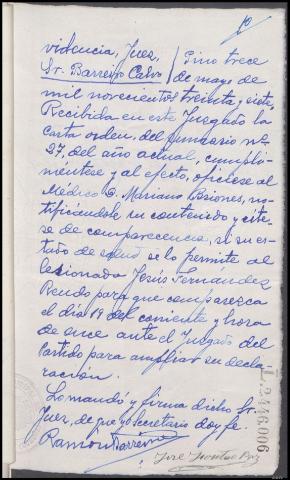 10
videncia, Juez, } Pino trece
Sr. Barreiro Calvo } de mayo de
mil novecientos treinta y siete,
Recibida en este Juzgado la
carta orden, del sumario nº
27, del año actual, cumpli-
méntese y al efecto, ofíciese al
Médico D. Mariano Briones, no-
tificándole su contenido y cíte-
se de comparecencia, si su es-
tado de salud se lo permite al
lesionado Jesús Fernández
Rendo para que comparezca
el día 18 del corriente y hora
de once ante el Juzgado del
Partido para ampliar su decla-
ración.
Lo mandó y firma dicho Sr.
Juez, de que yo Secretario doy fe.
Ramón Barreiro
José
2146,006